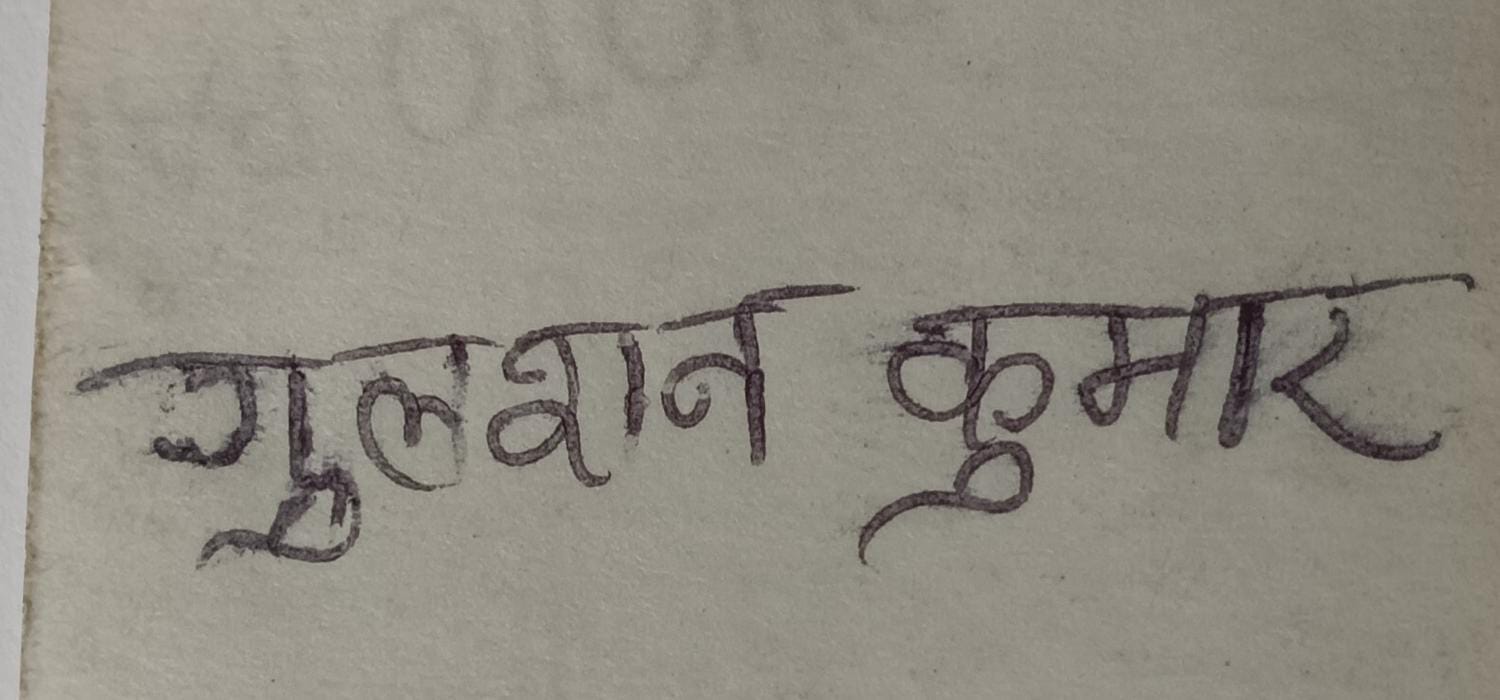 गुलशन कुमार